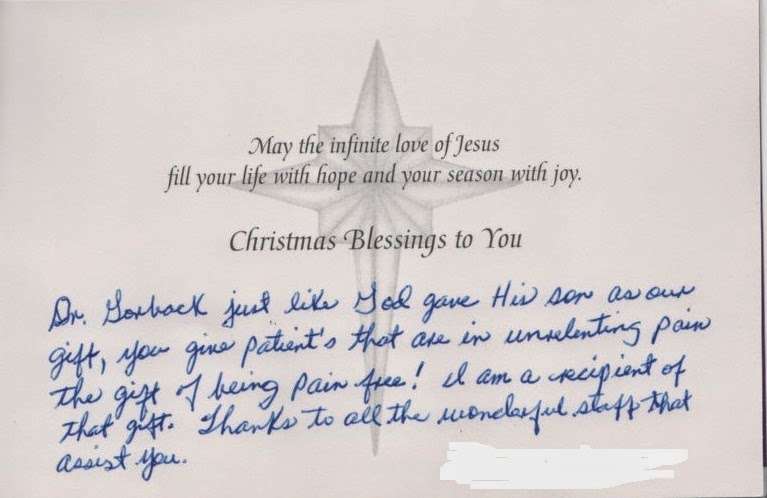 May the infinite love of Jesus
fill your life with hope and your season with joy.
Christmas Blessings to You
Dr. Gorback just like God gave His son as our
gift, you give patient's that are in unrelenting pain
the gift of being pain free! I am a recipient of
that gift. Thanks to all the wonderful staff that
assist you.